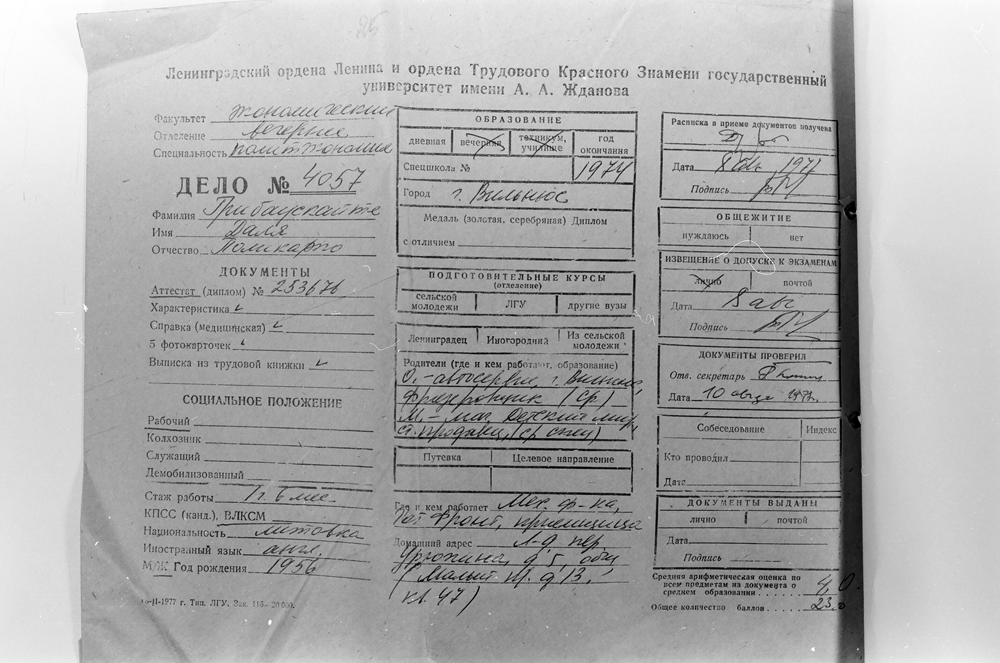 25
Ленинградский ордена Ленина и ордена Трудового Красного Знамени государственный
университет имени А. А. Жданова
Факультет экономический
Отделение вечернее
Специальность политэкономия
ДЕЛО № 4057
Фамилия Грибаускайте
Имя Даля
Отчество Поликарпо
ДОКУМЕНТЫ
Аттестат (диплом) № 253676
Характеристика
Справка (медицинская)
5 фотокарточек
Выписка из трудовой книжки
СОЦИАЛЬНОЕ ПОЛОЖЕНИЕ
Рабочий
Колхозник
Служащий
Демобилизованный
Стаж работы 1 г. 6 мес.
КПСС (канд.), ВЛКСМ
Национальность литовка
Иностранный язык англ.
М/Ж Год рождения 1956
10-II-1977 г. Тип. ЛГУ. Зак. 116—20 000.
ОБРАЗОВАНИЕ
дневная вечерняя техникум, училище год окончания
Спецшкола № 1974
Город г. Вильнюс
Медаль (золотая, серебряная) Диплом
с отличием
ПОДГОТОВИТЕЛЬНЫЕ КУРСЫ
(отделение)
сельской молодежи ЛГУ другие вузы
Ленинградец Иногородний Из сельской молодежи
Родители (где и кем работают, образование)
О. – автосервис, г. Вильнюс,
фрезеровщик (ср)
М – маг. Детский мир,
ст. продавец, (ср спец)
Путевка Целевое направление
Где и кем работает Мех. ф-ка,
Рот Фронт, приемщица
Домашний адрес Л-д, пер
д. 5, общ
(Малый пр. д 13,
кв. 47)
Расписка в приеме документов получена
Дата 8 авг 1977
Подпись
ОБЩЕЖИТИЕ
нуждаюсь нет
ИЗВЕЩЕНИЕ О ДОПУСКЕ К ЭКЗАМЕНАМ
лично почтой
Дата 8 авг
Подпись
ДОКУМЕНТЫ ПРОВЕРИЛ
Отв. секретарь
Дата 10 августа 1977г.
Собеседование Индекс
Кто проводил
Дата
ДОКУМЕНТЫ ВЫДАНЫ
лично почтой
Дата
Подпись
Средняя арифметическая оценка по
всем предметам из документа о
среднем образовании 4,0
Общее количество баллов 23.0